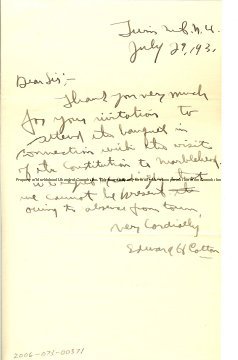 July 29, 193
Dear Sir;-
Thank you very much
for your invitation to
attend the banquet in
connection with the visits
of the Constitution to Marblehead.
we regret that
we cannot be present
owing to absence from town.
Very Cordially
Edward H Cotton
2006-073-00371